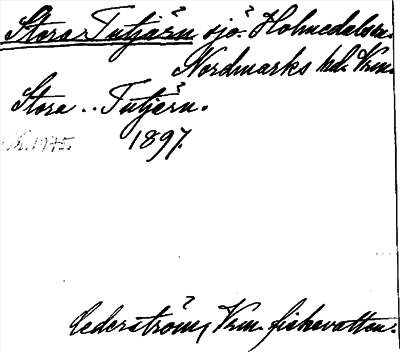 Stora Tutjärn sjö. Holmedals sn.
Nordmarks hd. Vrm.
Stora .. Tutjern.
1897.
Cederström, Vrm. fiskevatten.